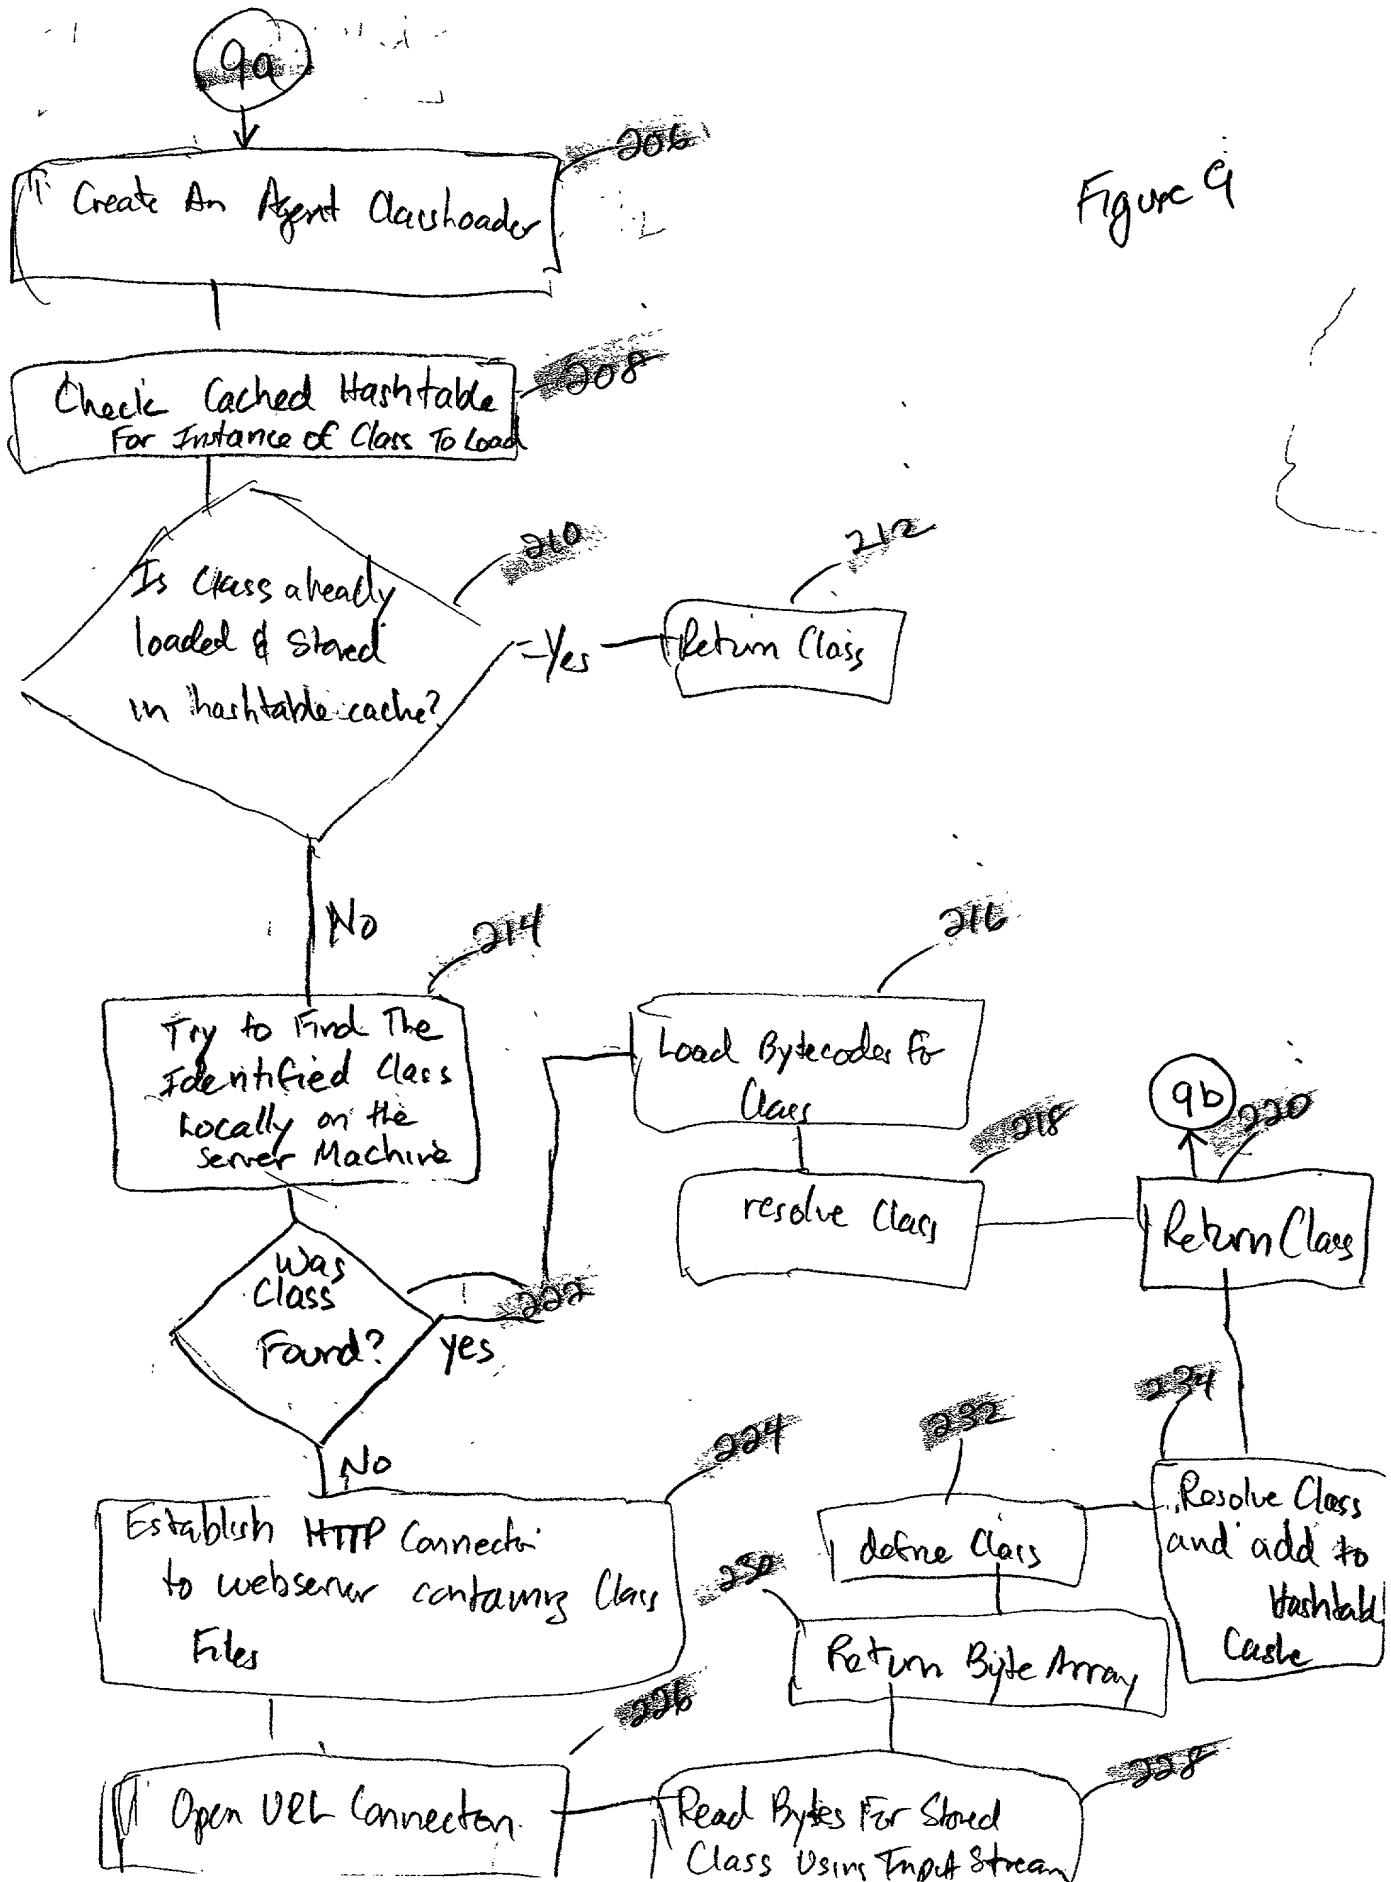 9a
206
Figure 9
Create An Agent ClassLoader
208
Check Cached Hashtable
For Instance of Class To Load
210
212
Is Class already
loaded & Stored
in hashtable cache?
Yes
Return Class
No
214
216
Try to Find The
Identified Class
Locally on the
Server Machine
Load Bytecodes For
Class
218
9b
220
resolve Class
Return Class
Was
Class
Found?
222
yes
No
224
232
234
Establish HTTP Connectio
to webserver containing Class
Files
define Class
Resolve Class
and add to
Hashtabl
Cashe
230
Return Byte Array
226
228
Open URL Connection
Read Bytes For Stored
Class Using Input Stream